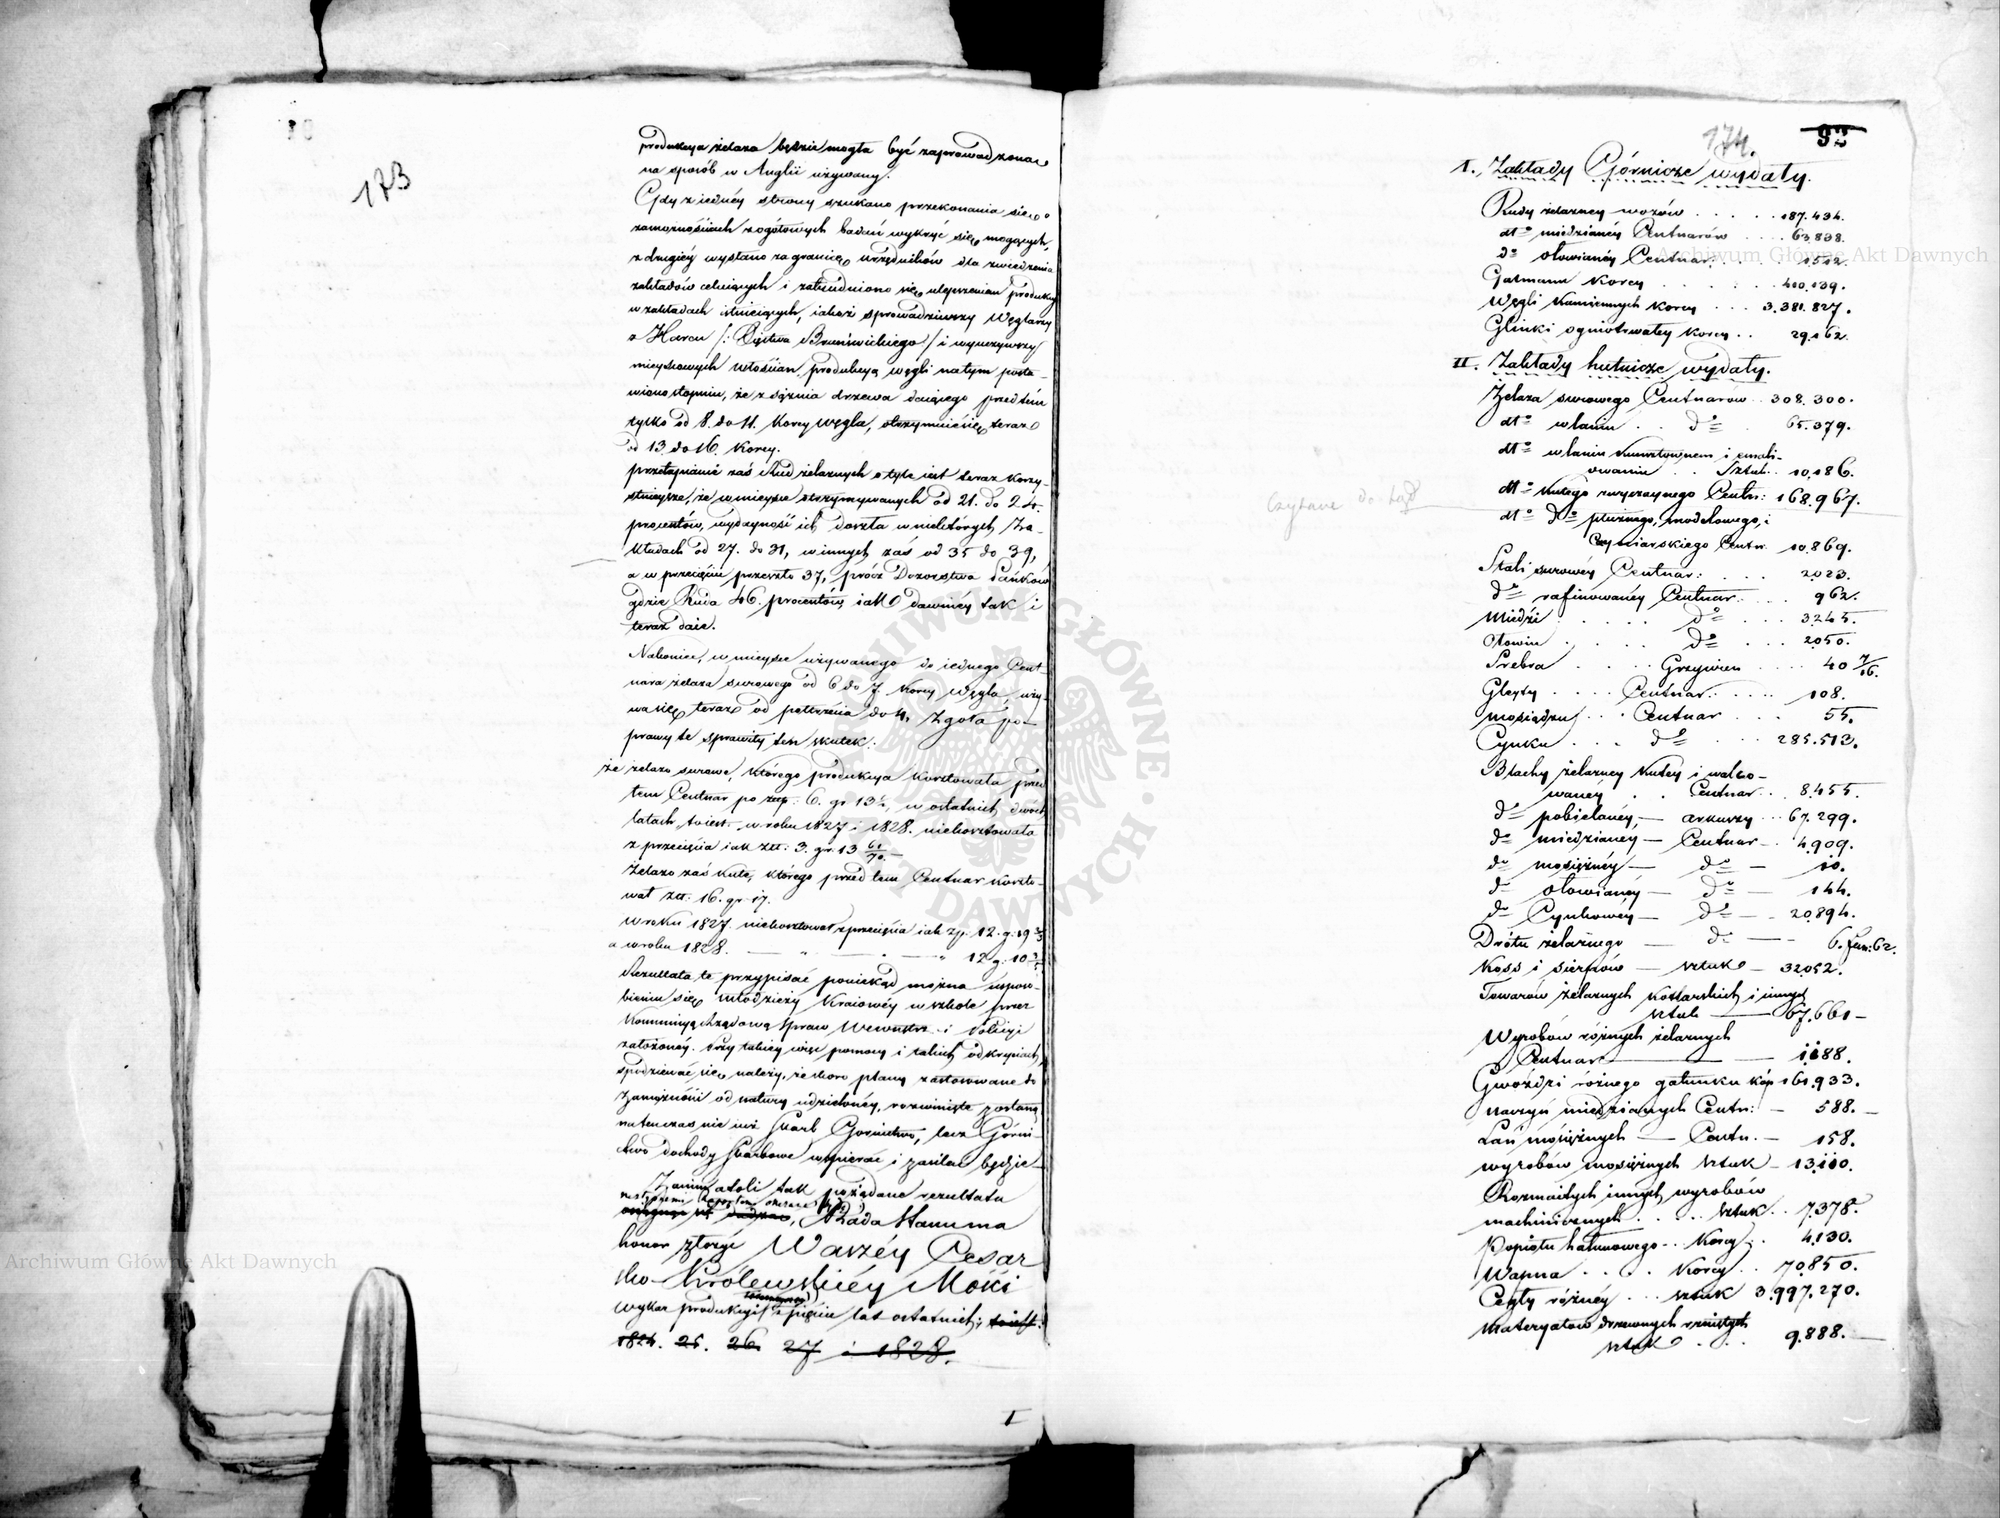 173
produkcya żelaza będzie mogła być zaprowadzona
na sposób w Anglii używany.
Gdy z iednéy strony szukano przekonania się o
zamożnościach zogółowych badań wykryć się mogących,
z drugiéy wysłano za granicę urzędników dla zwiedzenia
zakładów celuiących i zatrudniono się ulepszeniem produkcyi
w zakładach istnieiących, iakoż sprowadziwszy Węglarzy
z Harcu /: Xięstwa Brunświckiego :/ i wyuczywszy
mieyscowych włościan, produkcyą węgli na tym posta-
wiono stopniu, że z sążnia drzewa daiącego przedtém
tylko od 8. do 11. Korcy węgla, otrzymuie się teraz
od 13 do 16. Korcy.
przetapianie zaś Rud żelaznych o tyle iest teraz korzy-
stnieysze, że w mieysce otrzymywanych od 21. do 24.
procentów, wydayność ich doszła w niektórych Za-
kładach od 27. do 31, w innych zaś od 35 do 39,
a w przecięciu przeszło 37, prócz Dozorstwa Pańków
gdzie Ruda 46. procentów iak dawniéy tak i
teraz daie.
Nakoniec, w mieysce używanego do iednego Cent-
nara żelaza surowego od 6 do 7. Korcy Węgla, uży-
wa się teraz od półtrzecia do 4. Zgoła po-
prawy te sprawiły ten skutek:
że żelazo surowe, którego produkcya kosztowała przed
tem Centnar po złp: 6. gr 13½, w ostatnich dwóch
latach, to iest w roku 1827 i 1828. niekosztowała
z przecięcia iak złt: 3. gr. 13 61/70.
Żelazo zaś kute, którego przedtem Centnar koszto-
wał złt: 16. gr. 17.
w roku 1827. niekosztował z przecięcia iak zp. 12. g. 19
a w roku 1828. — " — " — " 12 g: 10
Rezultata te przypisać poniekąd można usposo-
bieniu się młodzieży Kraiowéy w szkole przez
Kommissyą Rządową Spraw Wewnętrz. i Policyi
założonéy. Przy takiéy więc pomocy i takich odkryciach
spodziewać się należy, że skoro plany zastosowane do
zamożności od natury udzielonéy, rozwinięte zostaną
natenczas nie iuż Skarb Górnictwo, lecz Górni-
ctwo dochody Skarbowe wspierać i zasilać będzie
Zanim atoli tak pożądane rezultata
Rada Stanu ma
honor złożyć Waszéy Cesar
sko-Królewskiéy Mości
wykaz produkcyi z pięciu lat ostatnich; to iest:
1824. 25. 26. 27 i 1828.
I
174.
92
Czytane do tąd
I., Zakłady Górnicze wydały.
Rudy żelaznéy wozów . . . . . 187.434.
dtº miedzianéy Centnarów . . . . 63.838.
dº ołowianéy Centnar: . . . 1512.
Galmanu Korcy . . . . . . 410.139.
Węgli Kamiennych Korcy . . . 3.381.827.
Glinki ogniotrwałey Korcy . . 29.162.
II. Zakłady hutnicze wydały.
Żelaza surowego Centnarow . . 308.300.
dtº w laniu . . dº . 65.379.
dtº w laniu kunsztownem i emali-
owaniu . . Sztuk . . 10.186.
dtº kutego zwyczaynego Centn: 168.967.
dtº dº płużnego, modelowego, i
Centn. 10.869.
Stali surowéy Centnar: . . . 2023.
dº rafinowanéy Centnar: . . . 962.
Miedzi . . . . . dº . . . 3245.
Ołowiu . . . . . dº . . . 2050.
Srebra . . . . Grzywien . . . . 40 7/16.
Gleyty . . . . Centnar: . . . . 108.
mosiądzu . . . Centnar . . . 55.
Cynku . . . dº . . . 285.513.
Blachy żelaznéy kutéy i walco-
wanéy . . Centnar . . . 8.455.
dº pobielanéy, — arkuszy . . . 67.299.
dº miedzianéy — Centnar — . . 4.909.
dº mosiężnéy — dº — 10.
dº ołowianéy — dº — 144.
dº Cynkowéy — dº — . 20.894.
Drótu żelaznego — dº — 6. fun: 62.
Koss i sierpów — sztuk — 32052.
Towarów żelaznych kotlarskich i innych
sztuk — 67.661 —
Wyrobów różnych żelaznych
Centnar — 1188.
Gwoździ różnego gatunku kóp 161.933.
naczyń miedzianych Centn: — 588. —
Lań mosiężnych — Centn. — 158.
wyrobów mosiężnych sztuk — 13.110.
Rozmaitych innych wyrobów
machinicznych . . . . . sztuk . . 7.378.
Popiołu hałunowego . . Korcy . . 4.130.
Wapna . . . . Korcy . . 70.850.
Cegły różnéy . . . sztuk 3.997.270.
Materyałów drzewnych rżniętych
sztuk . . . 9.888. —
Archiwum Główne Akt Dawnych
Archiwum Główne Akt Dawnych
ARCHIWUM GŁÓWNE AKT DAWNYCH